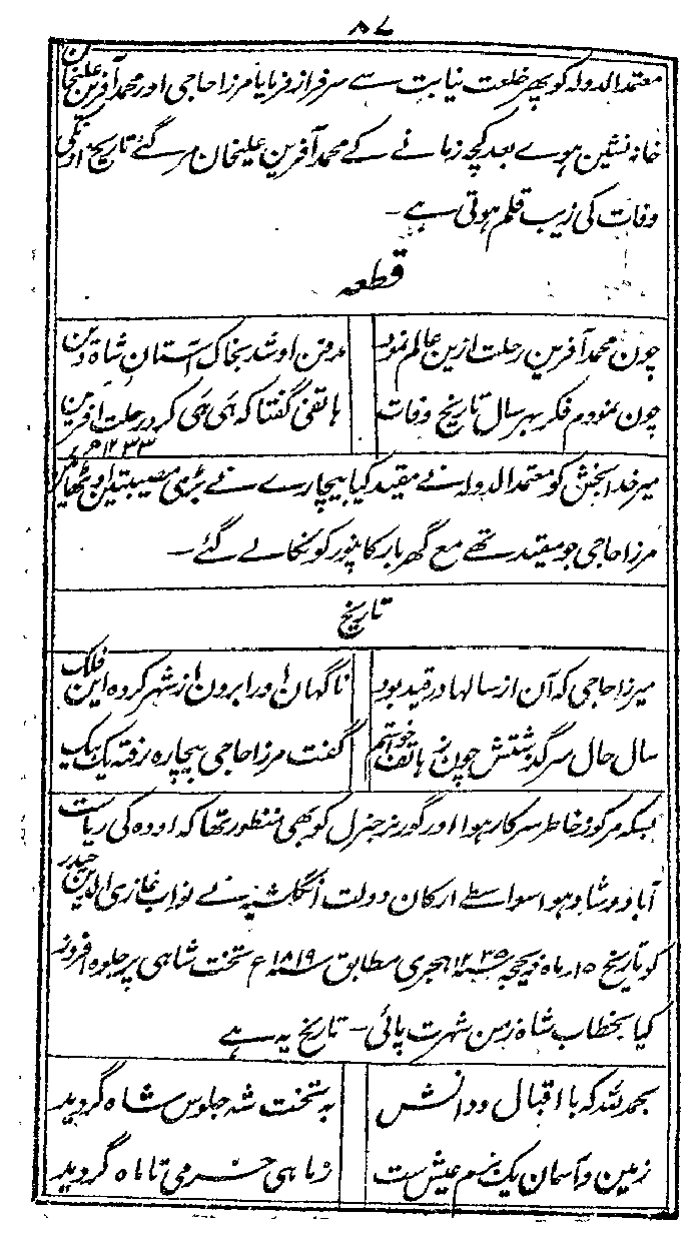 ۸۷
معتمد الدولہ کو پھر خلعت نیابت سے سرفراز فرمایا مرزا حاجی اور محمد آفرین علیخان
خانہ نشین ہوے بعد کچہ زمانے کے محمد آفرین علیخان مر گئے تاریخ اونکی
وفات کی زیب قلم ہوتی ہے -
قطعہ
چون محمد آفرین رحلت ازین عالم نمود مدفن او شد بخاک آستان شاہ دین
چون نمودم فکر بہر سال تاریخ وفات ہاتفی گفتا کہ ہی ہی کرد رحلت آفرین
۱۲۳۳ ہجری
میر خدا بخش کو معتمد الدولہ نے مقید کیا بیچارے نے بڑی مصیبتین اوٹھائین
مرزا حاجی جو مقید تھے مع گھر بار کانپور کو نکالے گئے -
تاریخ
میرزا حاجی کہ آن از سالہا در قید بود ناگہان او را برون از شہر کردہ این فلک
سال حال سرگذشتش چون ز ہاتف خواستم گفت مرزا حاجی بیچارہ رفتہ یک بیک
بسکہ مرکوز خاطر سرکار ہوا اور گورنر جنرل کو بھی منظور تھا کہ اودہ کی ریاست
آباد و شاد ہو اسواسطے ارکان دولت انگلشیہ نے نواب غازی الدین حیدر
کو تاریخ ۱۵ ماہ ذیحجہ سنہ ۱۲۳۵ ہجری مطابق سنہ ۱۸۱۹ ع تخت شاہی پر جلوہ افروز
کیا بخطاب شاہ زمن شہرت پائی - تاریخ یہ ہے
بحمد للہ کہ با اقبال و دانش بہ تخت شہ جلوس شاہ گردید
زمین و آسمان یک بزم عیش ست ز ماہی خرمی تا ماہ گردید